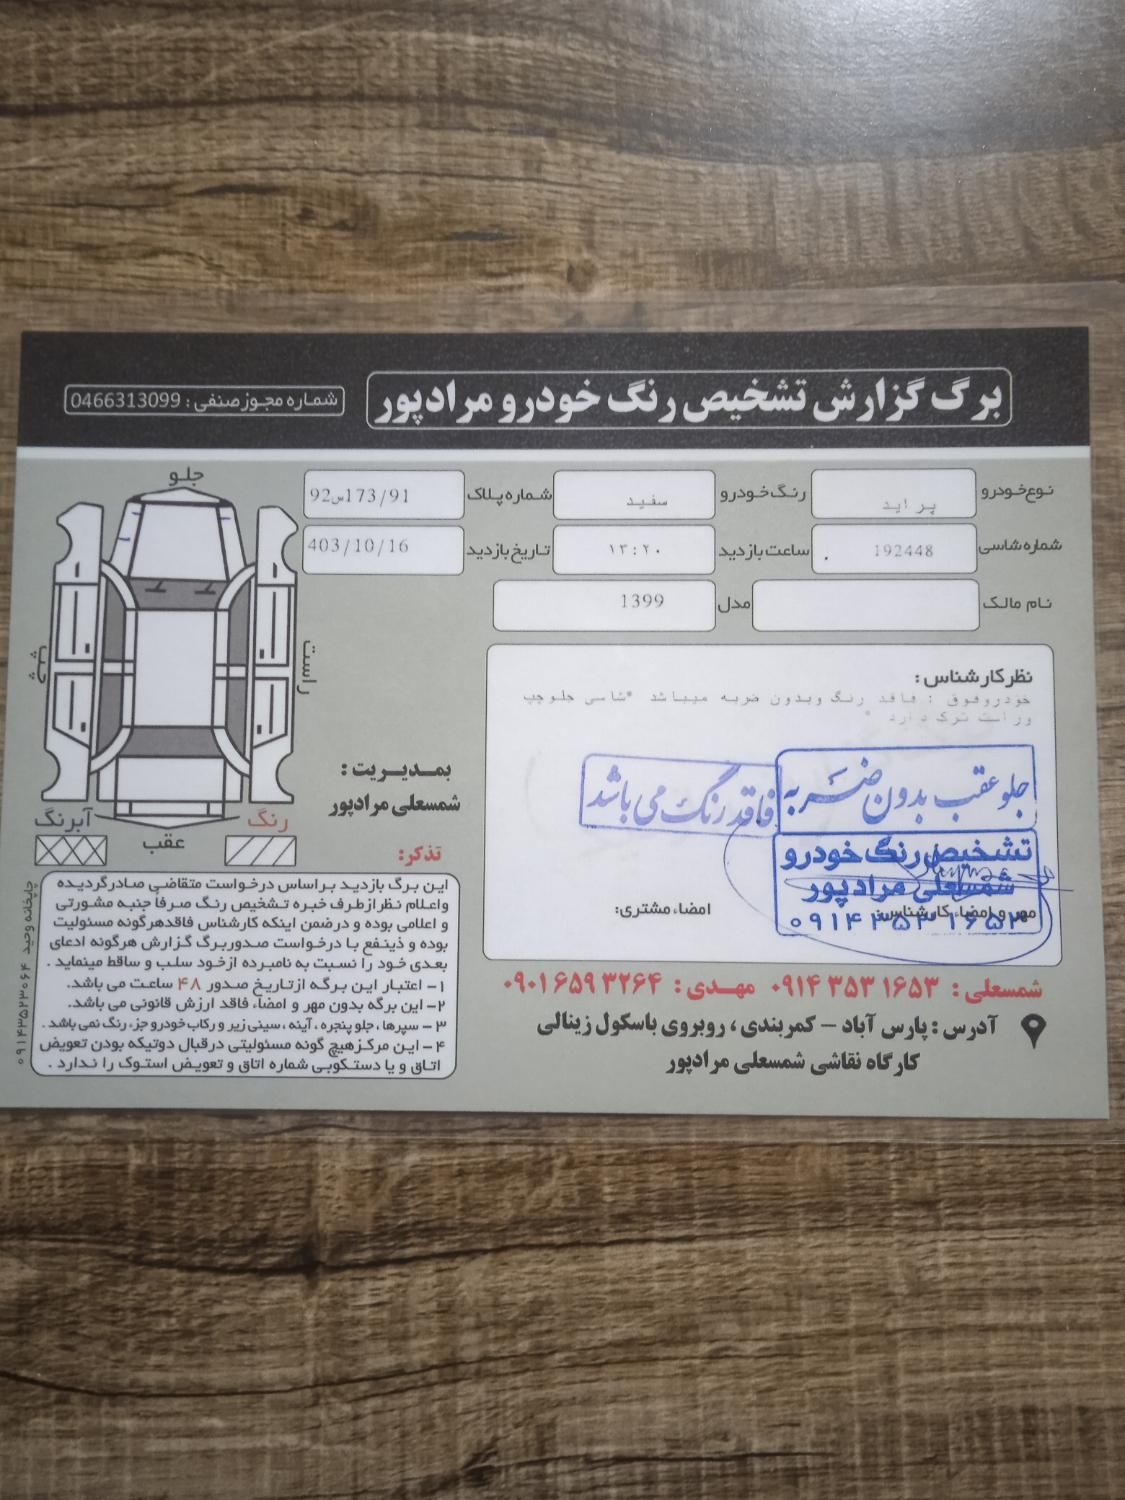 برگ گزارش تشخیص رنگ خودرو مرادپور
شماره مجوز صنفی : 0466313099
نوع خودرو پراید رنگ خودرو سفید شماره پلاک 92س173/91
شماره شاسی 192448 ساعت بازدید ۱۳:۲۰ تاریخ بازدید 403/10/16
نام مالک مدل 1399
نظر کارشناس :
خودروفوق : فاقد رنگ وبدون ضربه میباشد *شاسی جلوچپ
وراست ترک دارد *
جلو عقب بدون ضربه
فاقد رنگ می باشد
تشخیص رنگ خودرو
شمسعلی مرادپور
۰۹۱۴ ۳۵۳ ۱۶۵۳
مهر و امضاء کارشناس:
امضاء مشتری:
شمسعلی : ۰۹۱۴ ۳۵۳ ۱۶۵۳ مهدی : ۰۹۰۱ ۶۵۹ ۳۲۶۴
آدرس : پارس آباد – کمربندی ، روبروی باسکول زینالی
کارگاه نقاشی شمسعلی مرادپور
جلو
راست
چپ
عقب
رنگ
آبرنگ
بمدیریت :
شمسعلی مرادپور
تذکر:
این برگ بازدید براساس درخواست متقاضی صادرگردیده
واعلام نظر ازطرف خبره تشخیص رنگ صرفاً جنبه مشورتی
و اعلامی بوده و درضمن اینکه کارشناس فاقدهرگونه مسئولیت
بوده و ذینفع با درخواست صدوربرگ گزارش هرگونه ادعای
بعدی خود را نسبت به نامبرده ازخود سلب و ساقط مینماید .
۱– اعتبار این برگه ازتاریخ صدور ۴۸ ساعت می باشد.
۲–این برگه بدون مهر و امضاء فاقد ارزش قانونی می باشد.
۳– سپرها ، جلو پنجره ، آینه ، سینی زیر و رکاب خودرو جزء رنگ نمی باشد .
۴– این مرکزهیچ گونه مسئولیتی درقبال دوتیکه بودن تعویض
اتاق و یا دستکوبی شماره اتاق و تعویض استوک را ندارد .
چاپخانه وحید ۰۹۱۴۳۵۲۳۰۶۴